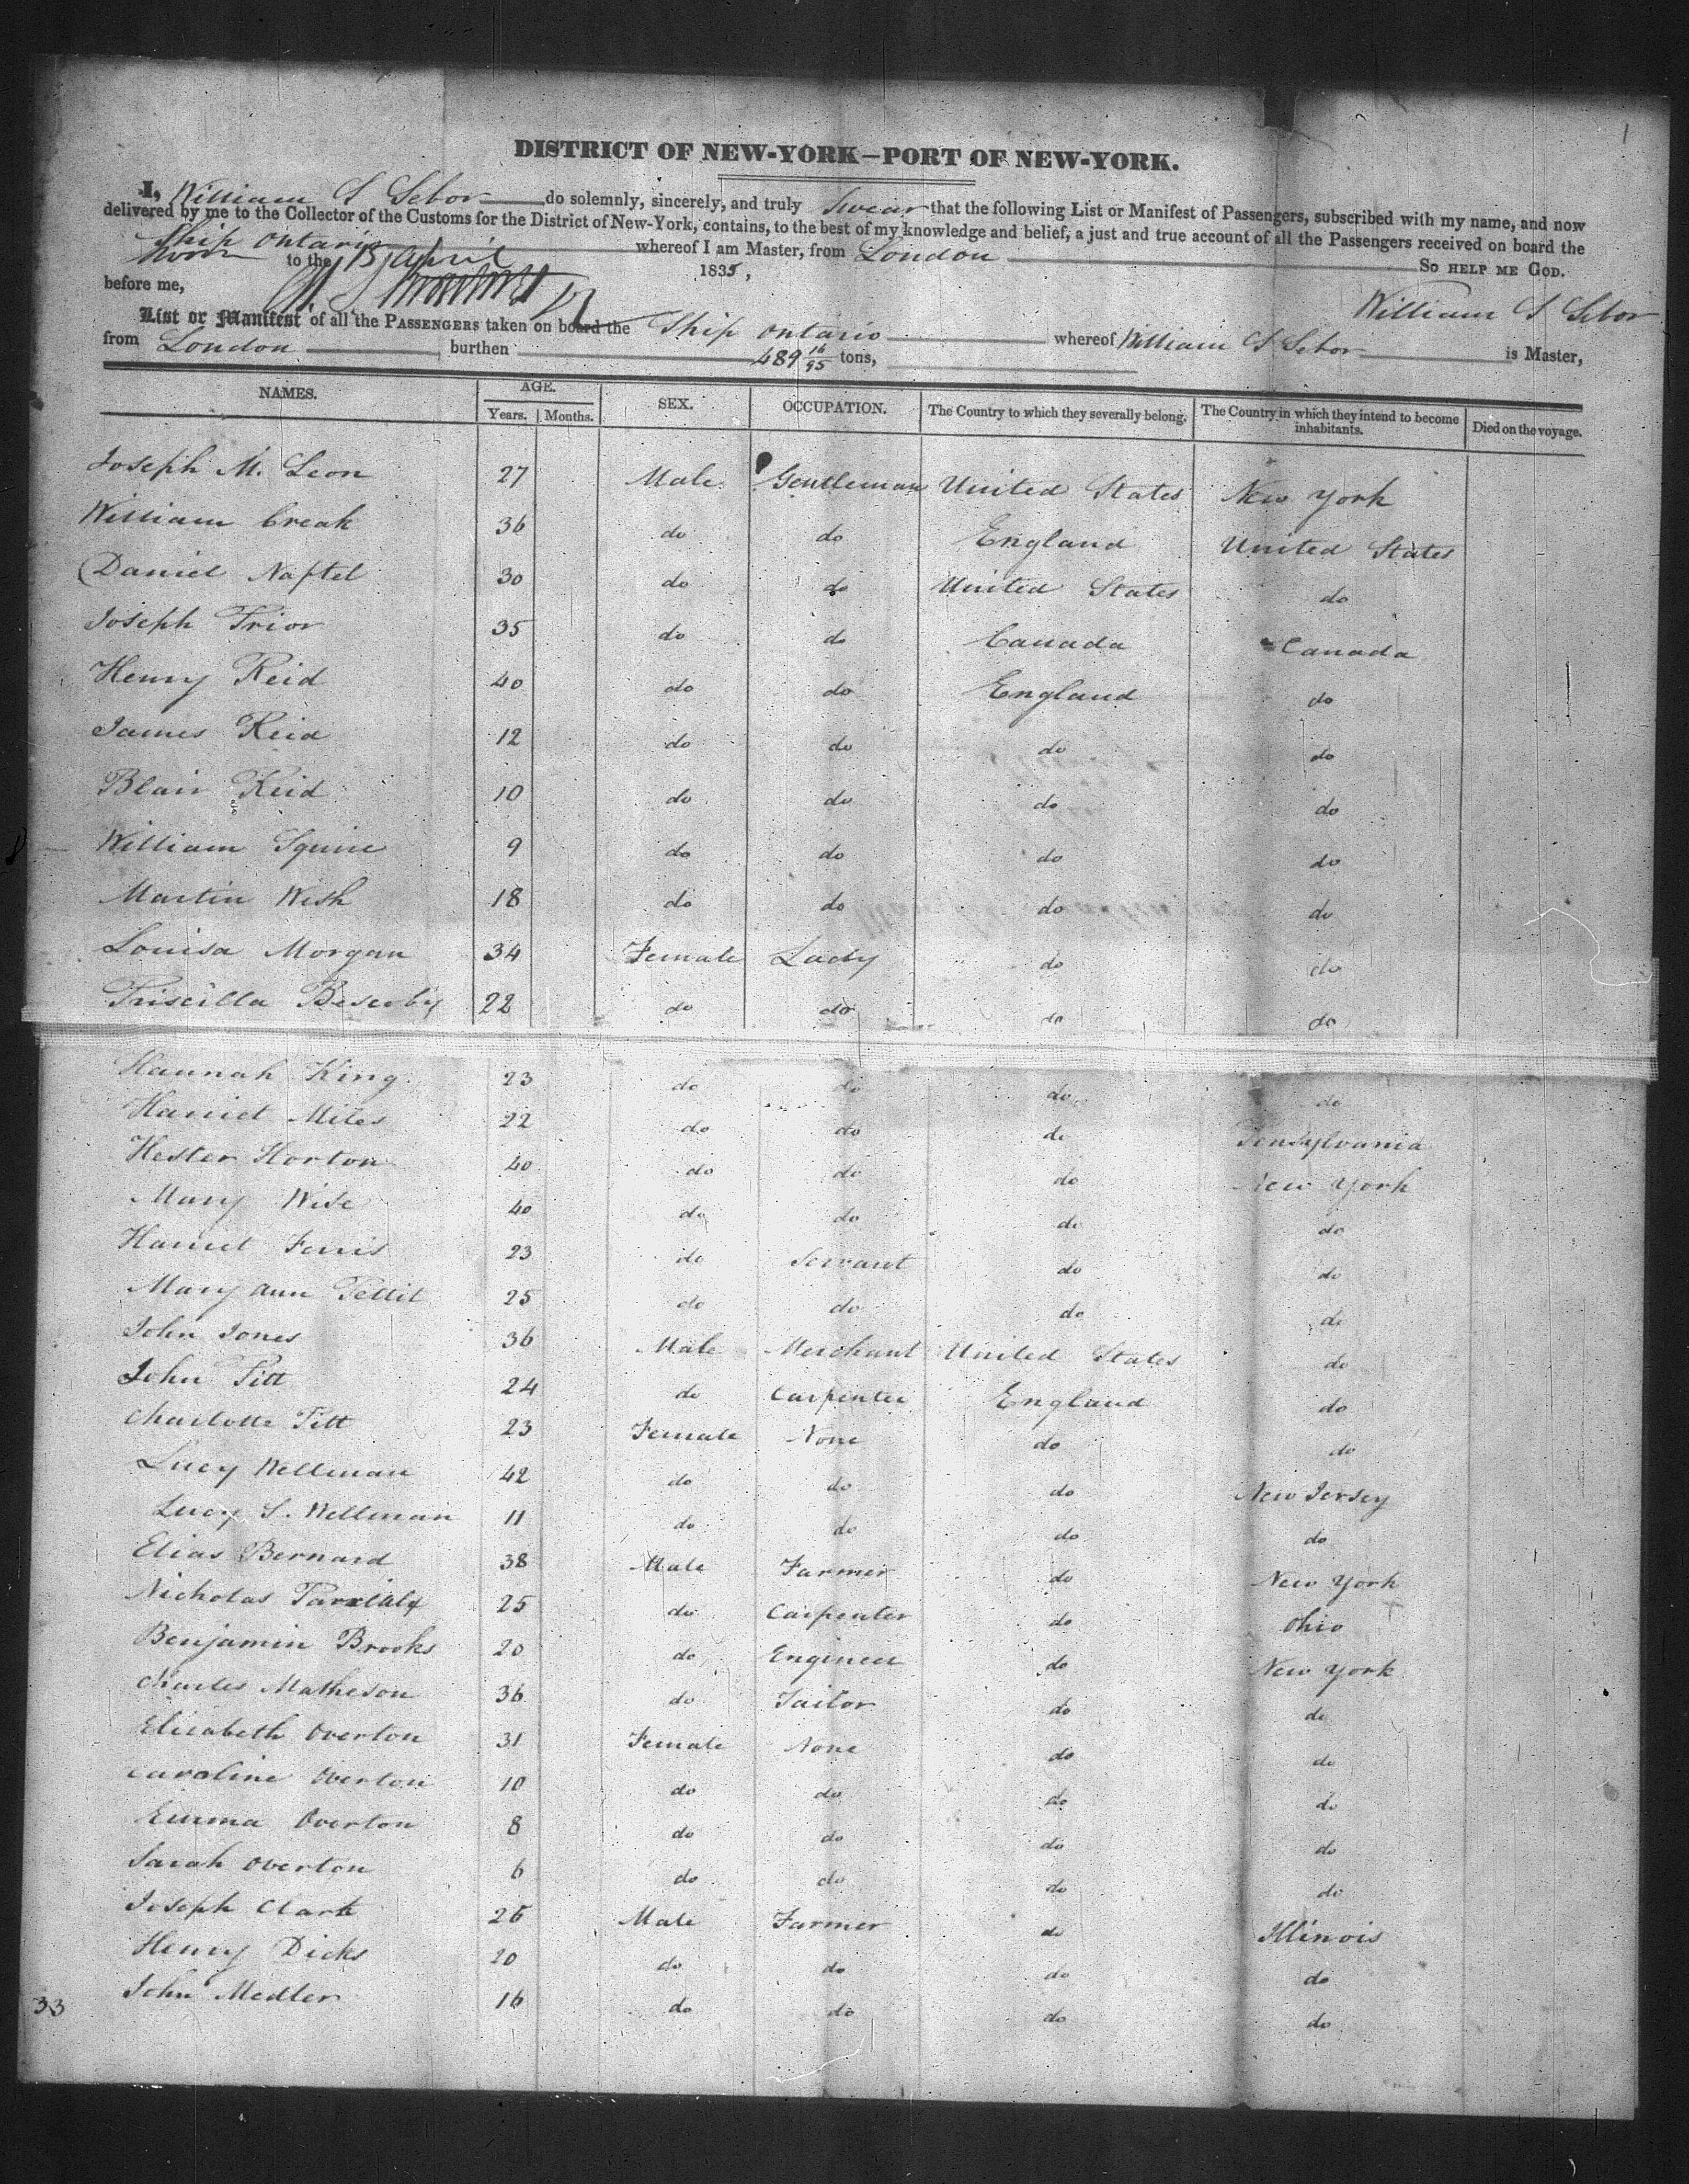 1
DISTRICT OF NEW-YORK—PORT OF NEW-YORK.
I, William S Sebor do solemnly, sincerely, and truly Swear that the following List or Manifest of Passengers, subscribed with my name, and now
delivered by me to the Collector of the Customs for the District of New-York, contains, to the best of my knowledge and belief, a just and true account of all the Passengers received on board the
Ship Ontario whereof I am Master, from London
Sworn to the 13 April 1835, So HELP ME GOD.
before me, William S Sebor
List or Manifest of all the PASSENGERS taken on board the Ship Ontario whereof William S Sebor is Master,
from London burthen 489 16/95 tons,
NAMES. AGE. SEX. OCCUPATION. The Country to which they severally belong. The Country in which they intend to become inhabitants. Died on the voyage.
Years. Months.
Joseph M. Leon 27 Male Gentleman United States New York
William Creak 36 do do England United States
Daniel Naftel 30 do do United States do
Joseph Prior 35 do do Canada Canada
Henry Reid 40 do do England do
James Reid 12 do do do do
Blair Reid 10 do do do do
William Squire 9 do do do do
Martin Wish 18 do do do do
Louisa Morgan 34 Female Lady do do
Priscilla Bescoby 22 do do do do
Hannah King 23 do do do do
Harriet Miles 22 do do do Pensylvania
Hester Horton 40 do do do New York
Mary Wise 40 do do do do
Harriet Ferris 23 do Servant do do
Mary Ann Pettit 25 do do do do
John Jones 36 Male Merchant United States do
John Pitt 24 do Carpenter England do
Charlotte Pitt 23 Female None do do
Lucy Wellman 42 do do do New Jersey
Lucy S. Wellman 11 do do do do
Elias Bernard 38 Male Farmer do New York
Nicholas 25 do Carpenter do Ohio
Benjamin Brooks 20 do Engineer do New York
Charles Matheson 36 do Tailor do do
Elizabeth Overton 31 Female None do do
Caroline Overton 10 do do do do
Emma Overton 8 do do do do
Sarah Overton 6 do do do do
Joseph Clark 26 Male Farmer do Illinois
Henry Dicks 20 do do do do
John Medler 16 do do do do
33